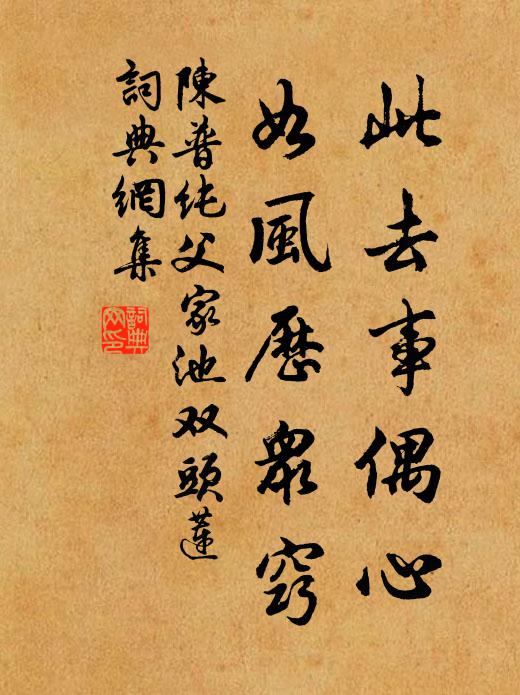 此去事偶心
如風歷眾竅
陳普純父家池双頭蓮
詞典網集
詞典網印